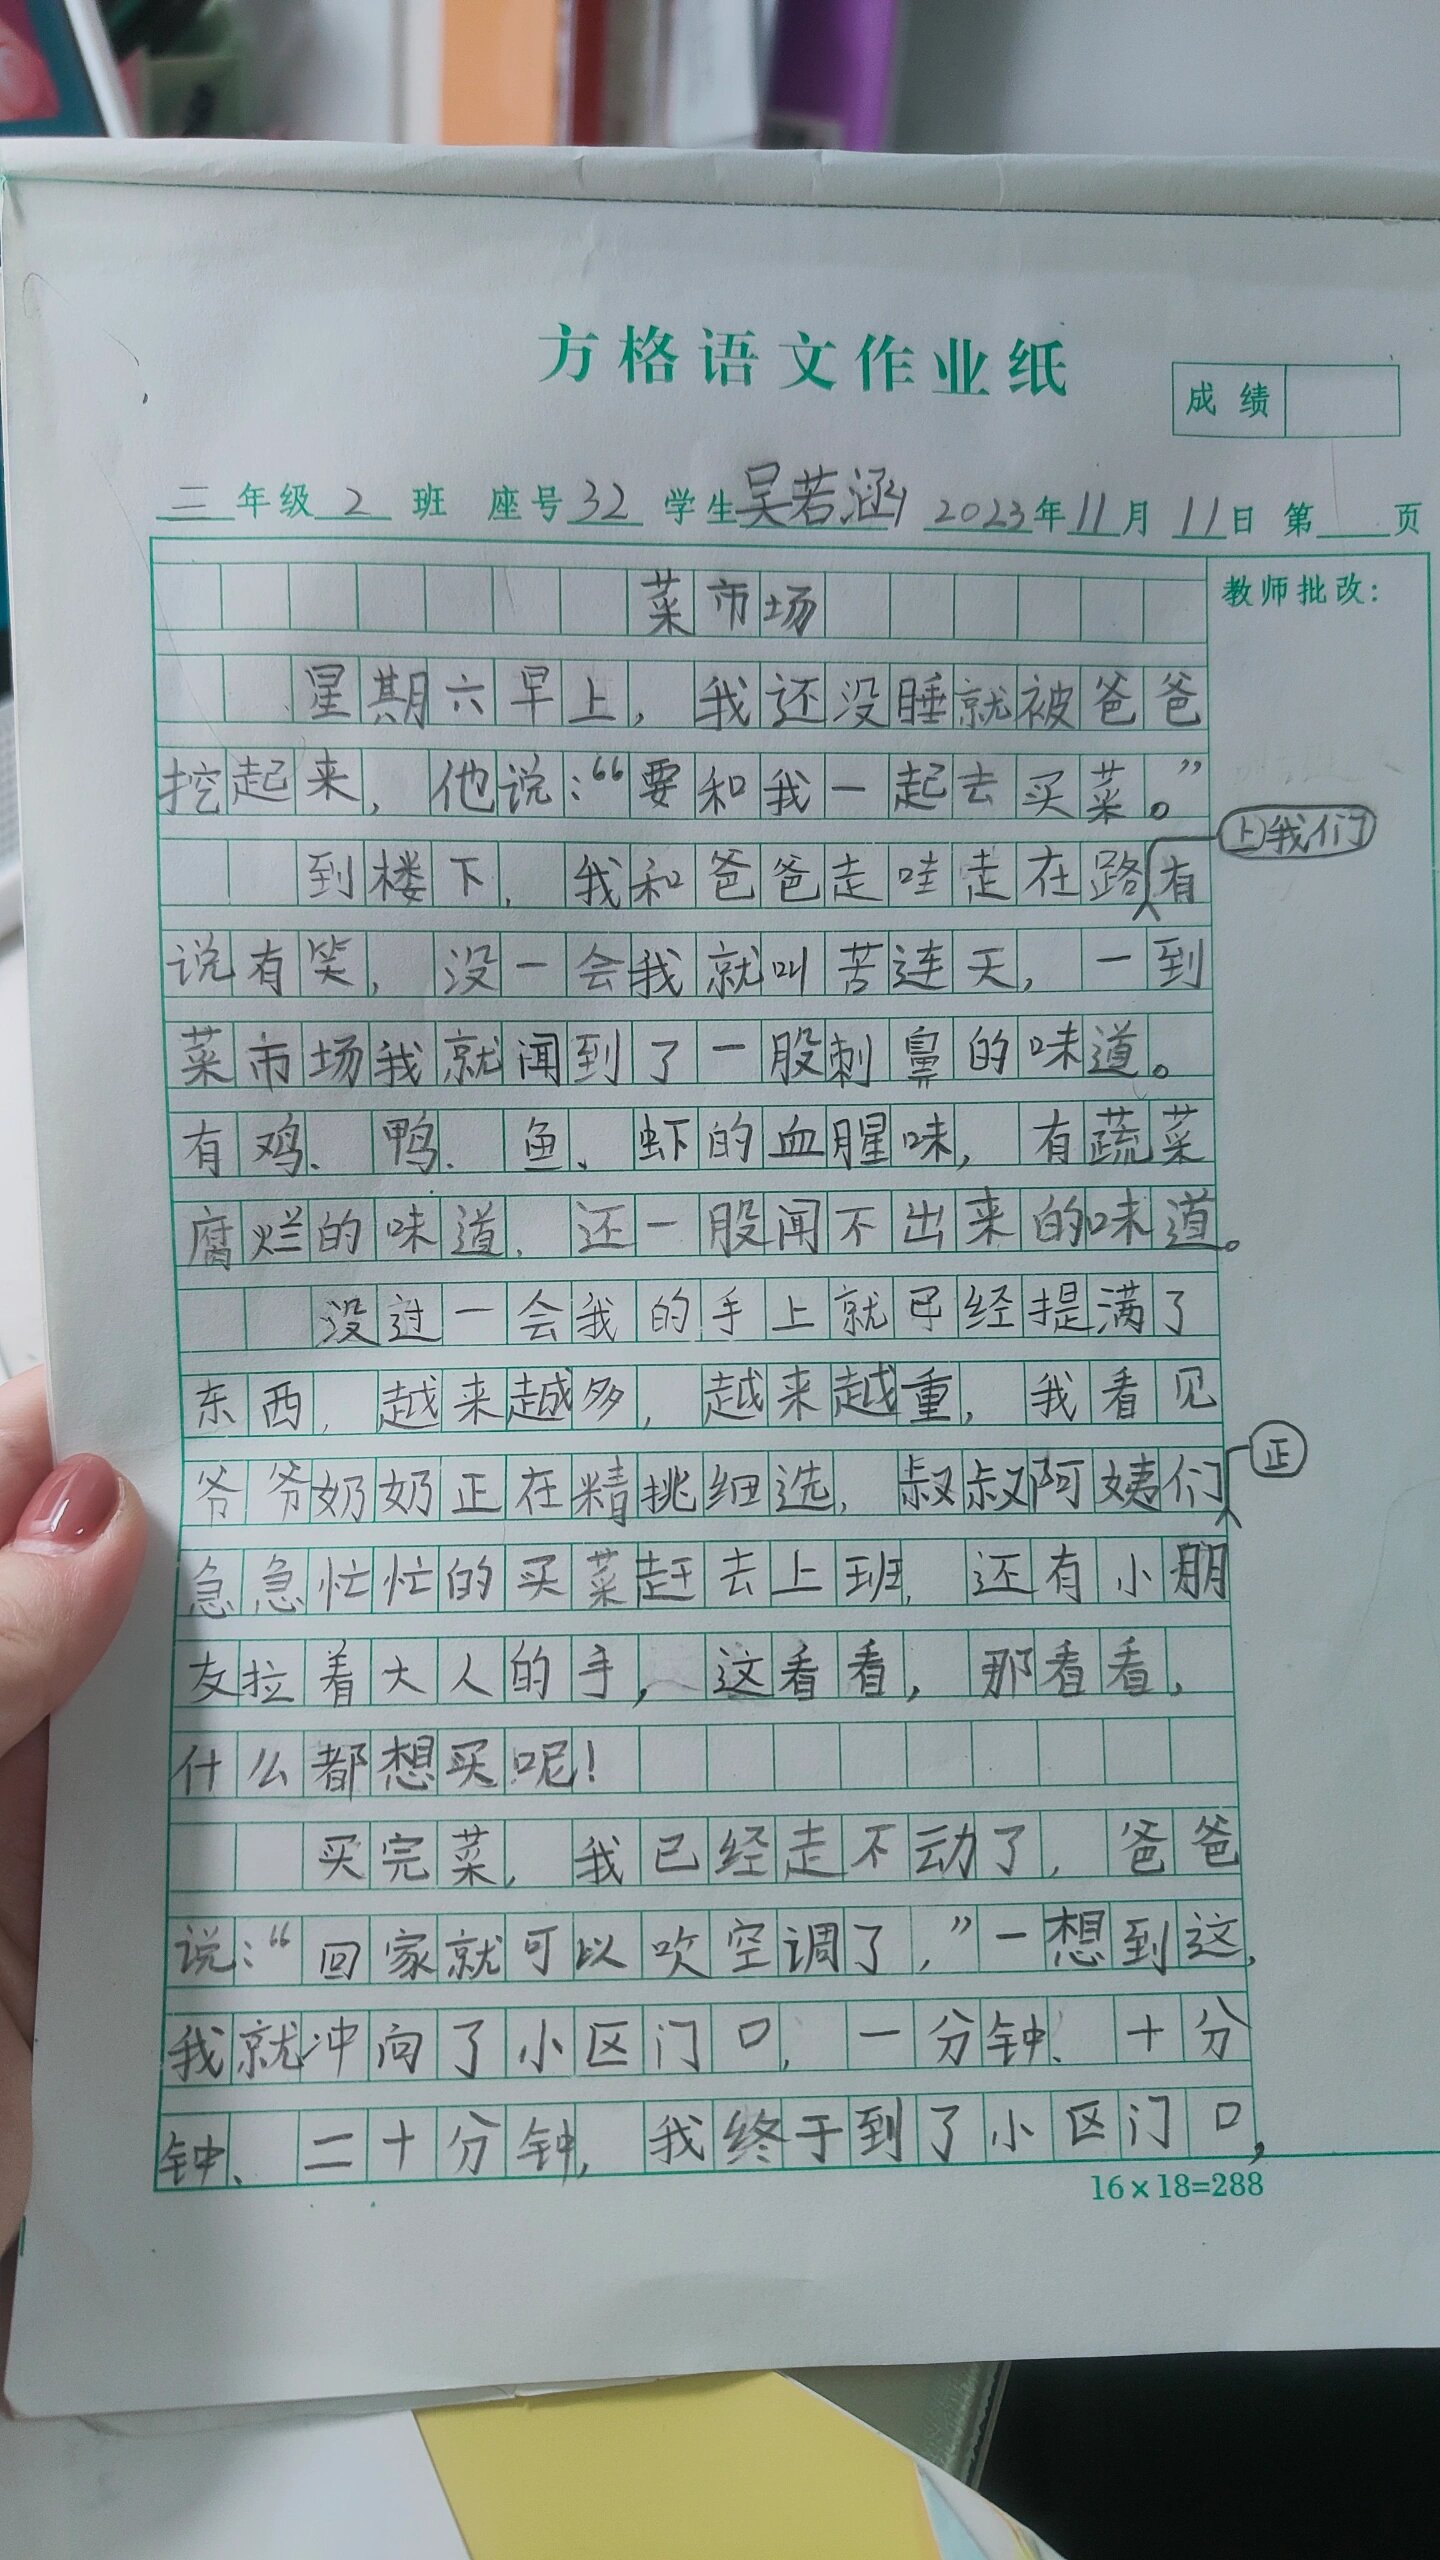 方格语文作业纸
成绩
三年级2班 座号32 学生吴若涵 2023年11月11日 第 页
教师批改：
菜市场
星期六早上，我还没睡就被爸爸
挖起来，他说：“要和我一起去买菜。”
上，我们
到楼下，我和爸爸走哇走在路有
说有笑，没一会我就叫苦连天，一到
菜市场我就闻到了一股刺鼻的味道。
有鸡、鸭、鱼、虾的血腥味，有蔬菜
腐烂的味道，还一股闻不出来的味道。
没过一会我的手上就已经提满了
东西，越来越多，越来越重，我看见
正
爷爷奶奶正在精挑细选，叔叔阿姨们
急急忙忙的买菜赶去上班，还有小朋
友拉着大人的手，这看看，那看看，
什么都想买呢！
买完菜，我已经走不动了，爸爸
说：“回家就可以吹空调了，”一想到这，
我就冲向了小区门口，一分钟、十分
钟、二十分钟，我终于到了小区门口，
16×18=288